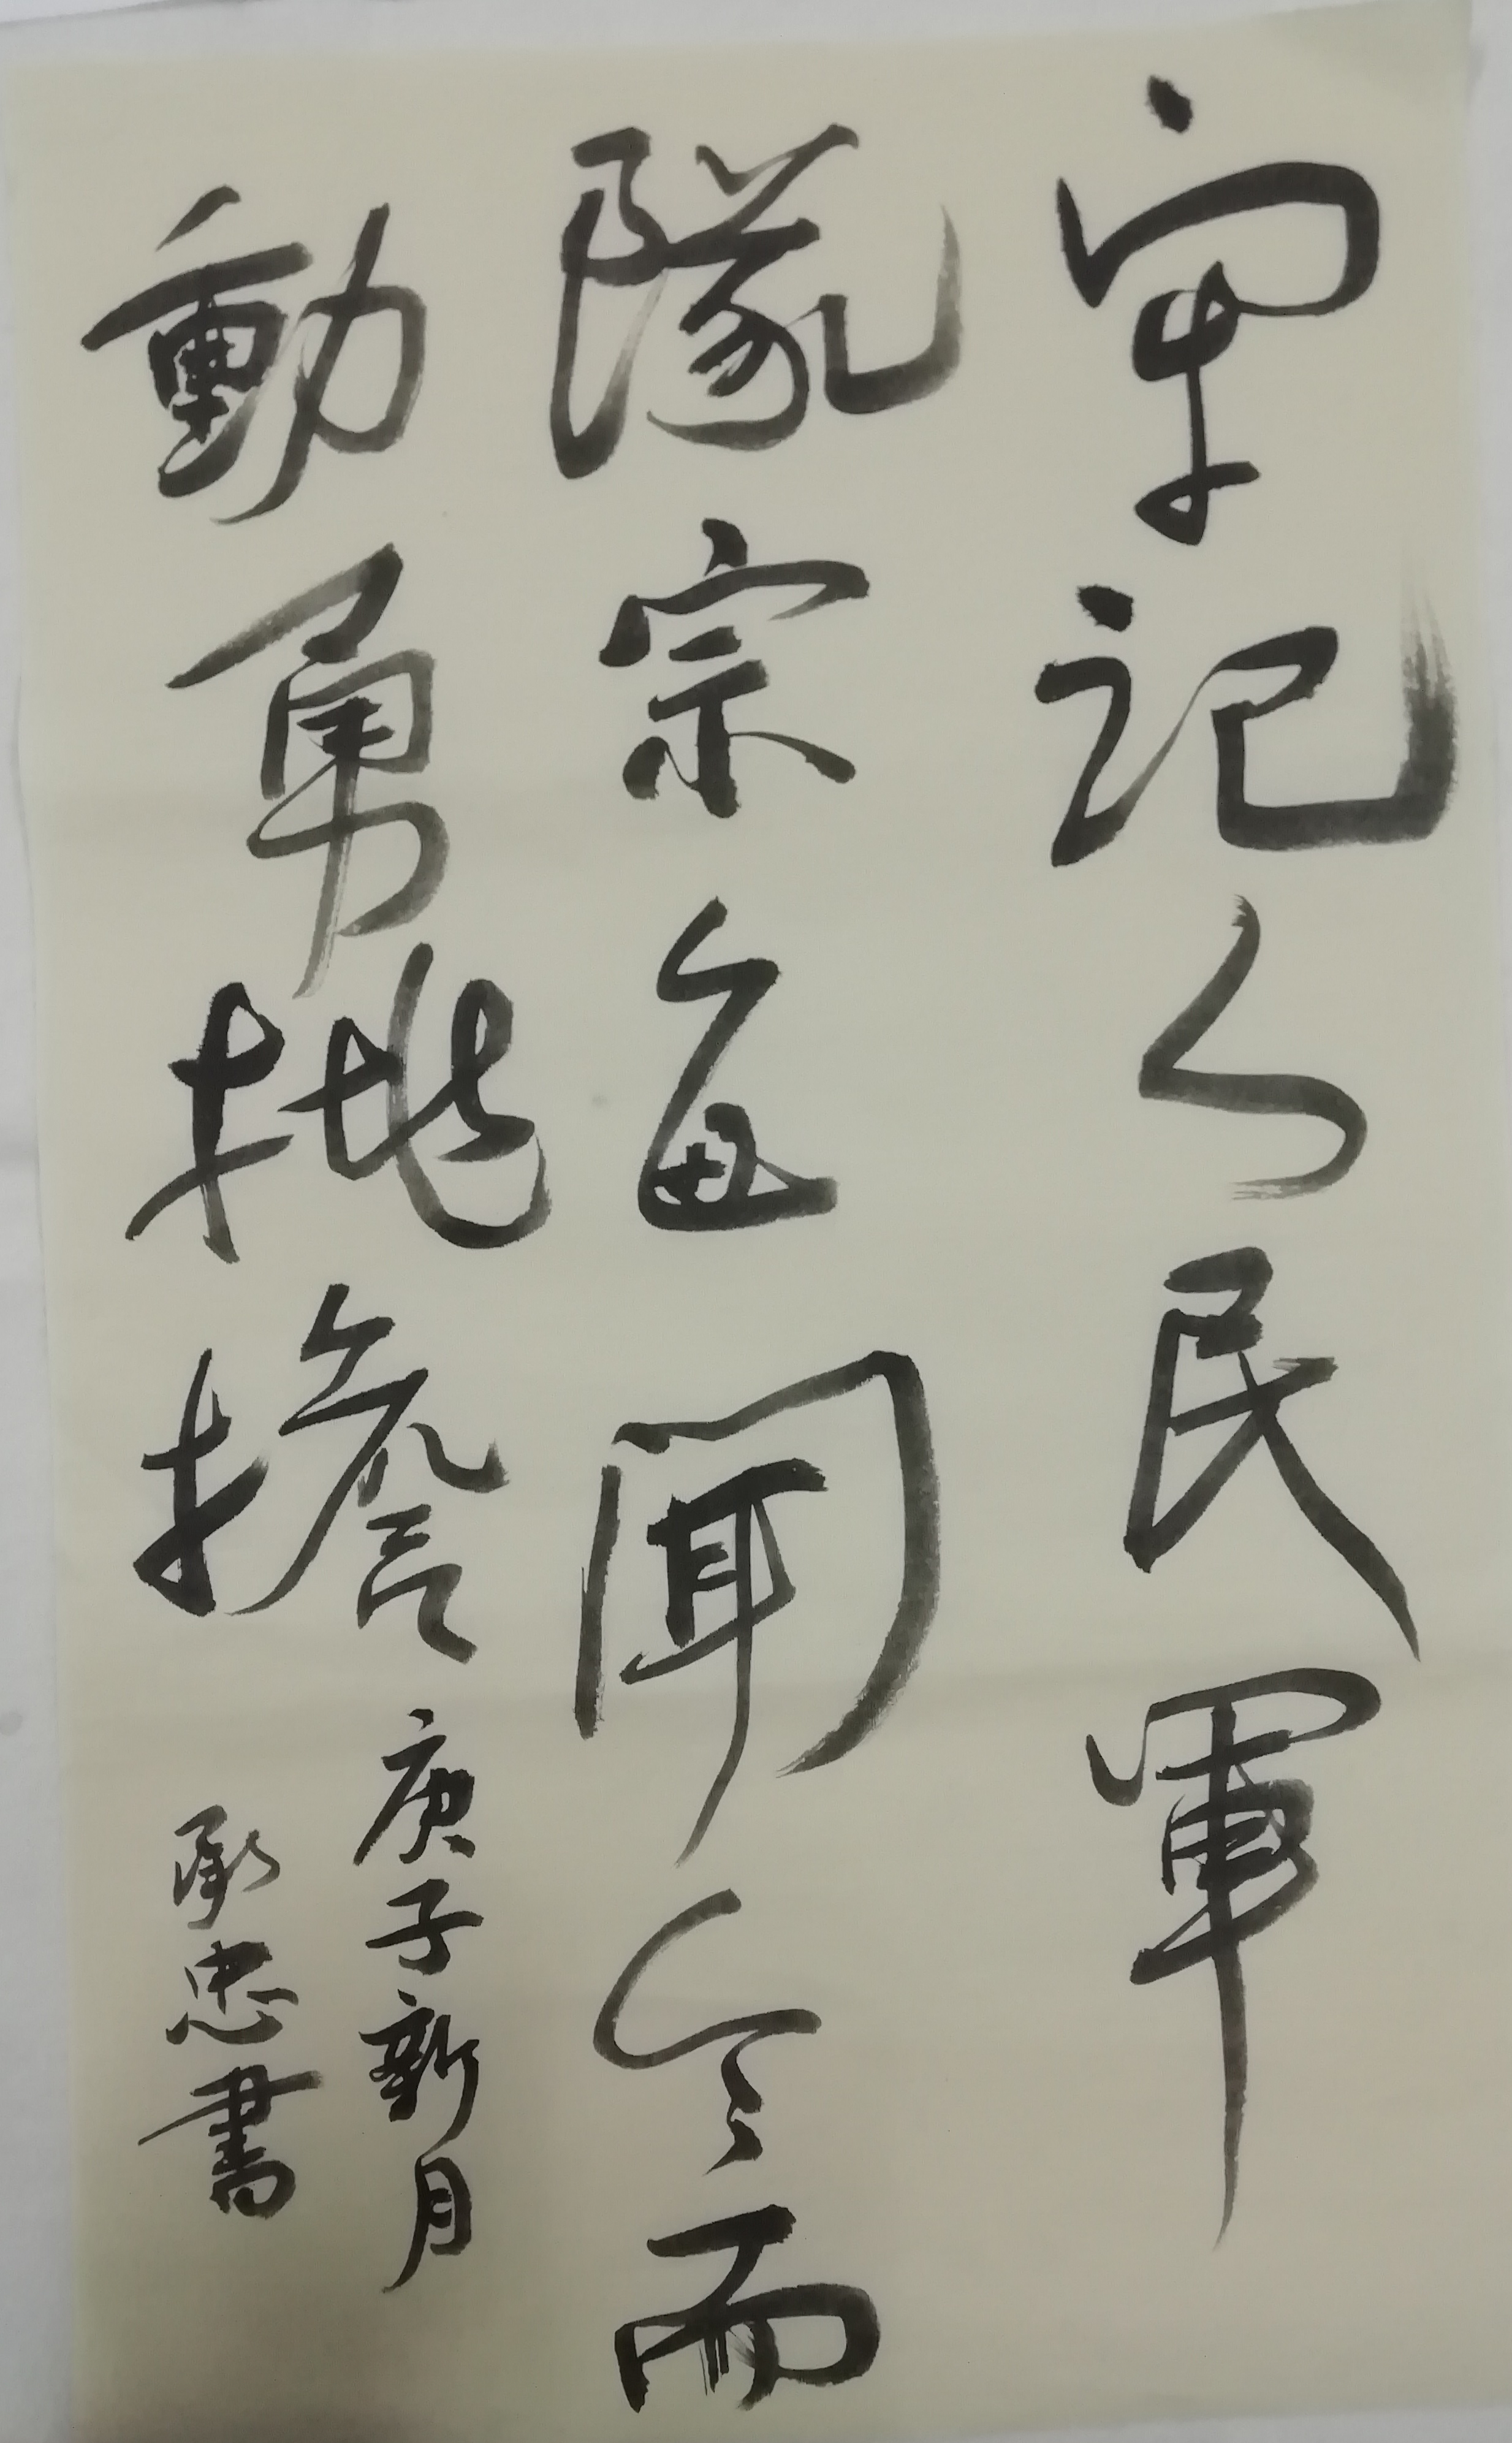 牢记人民軍
隊宗旨聞令而
動勇挑擔
庚子新月
承忠書